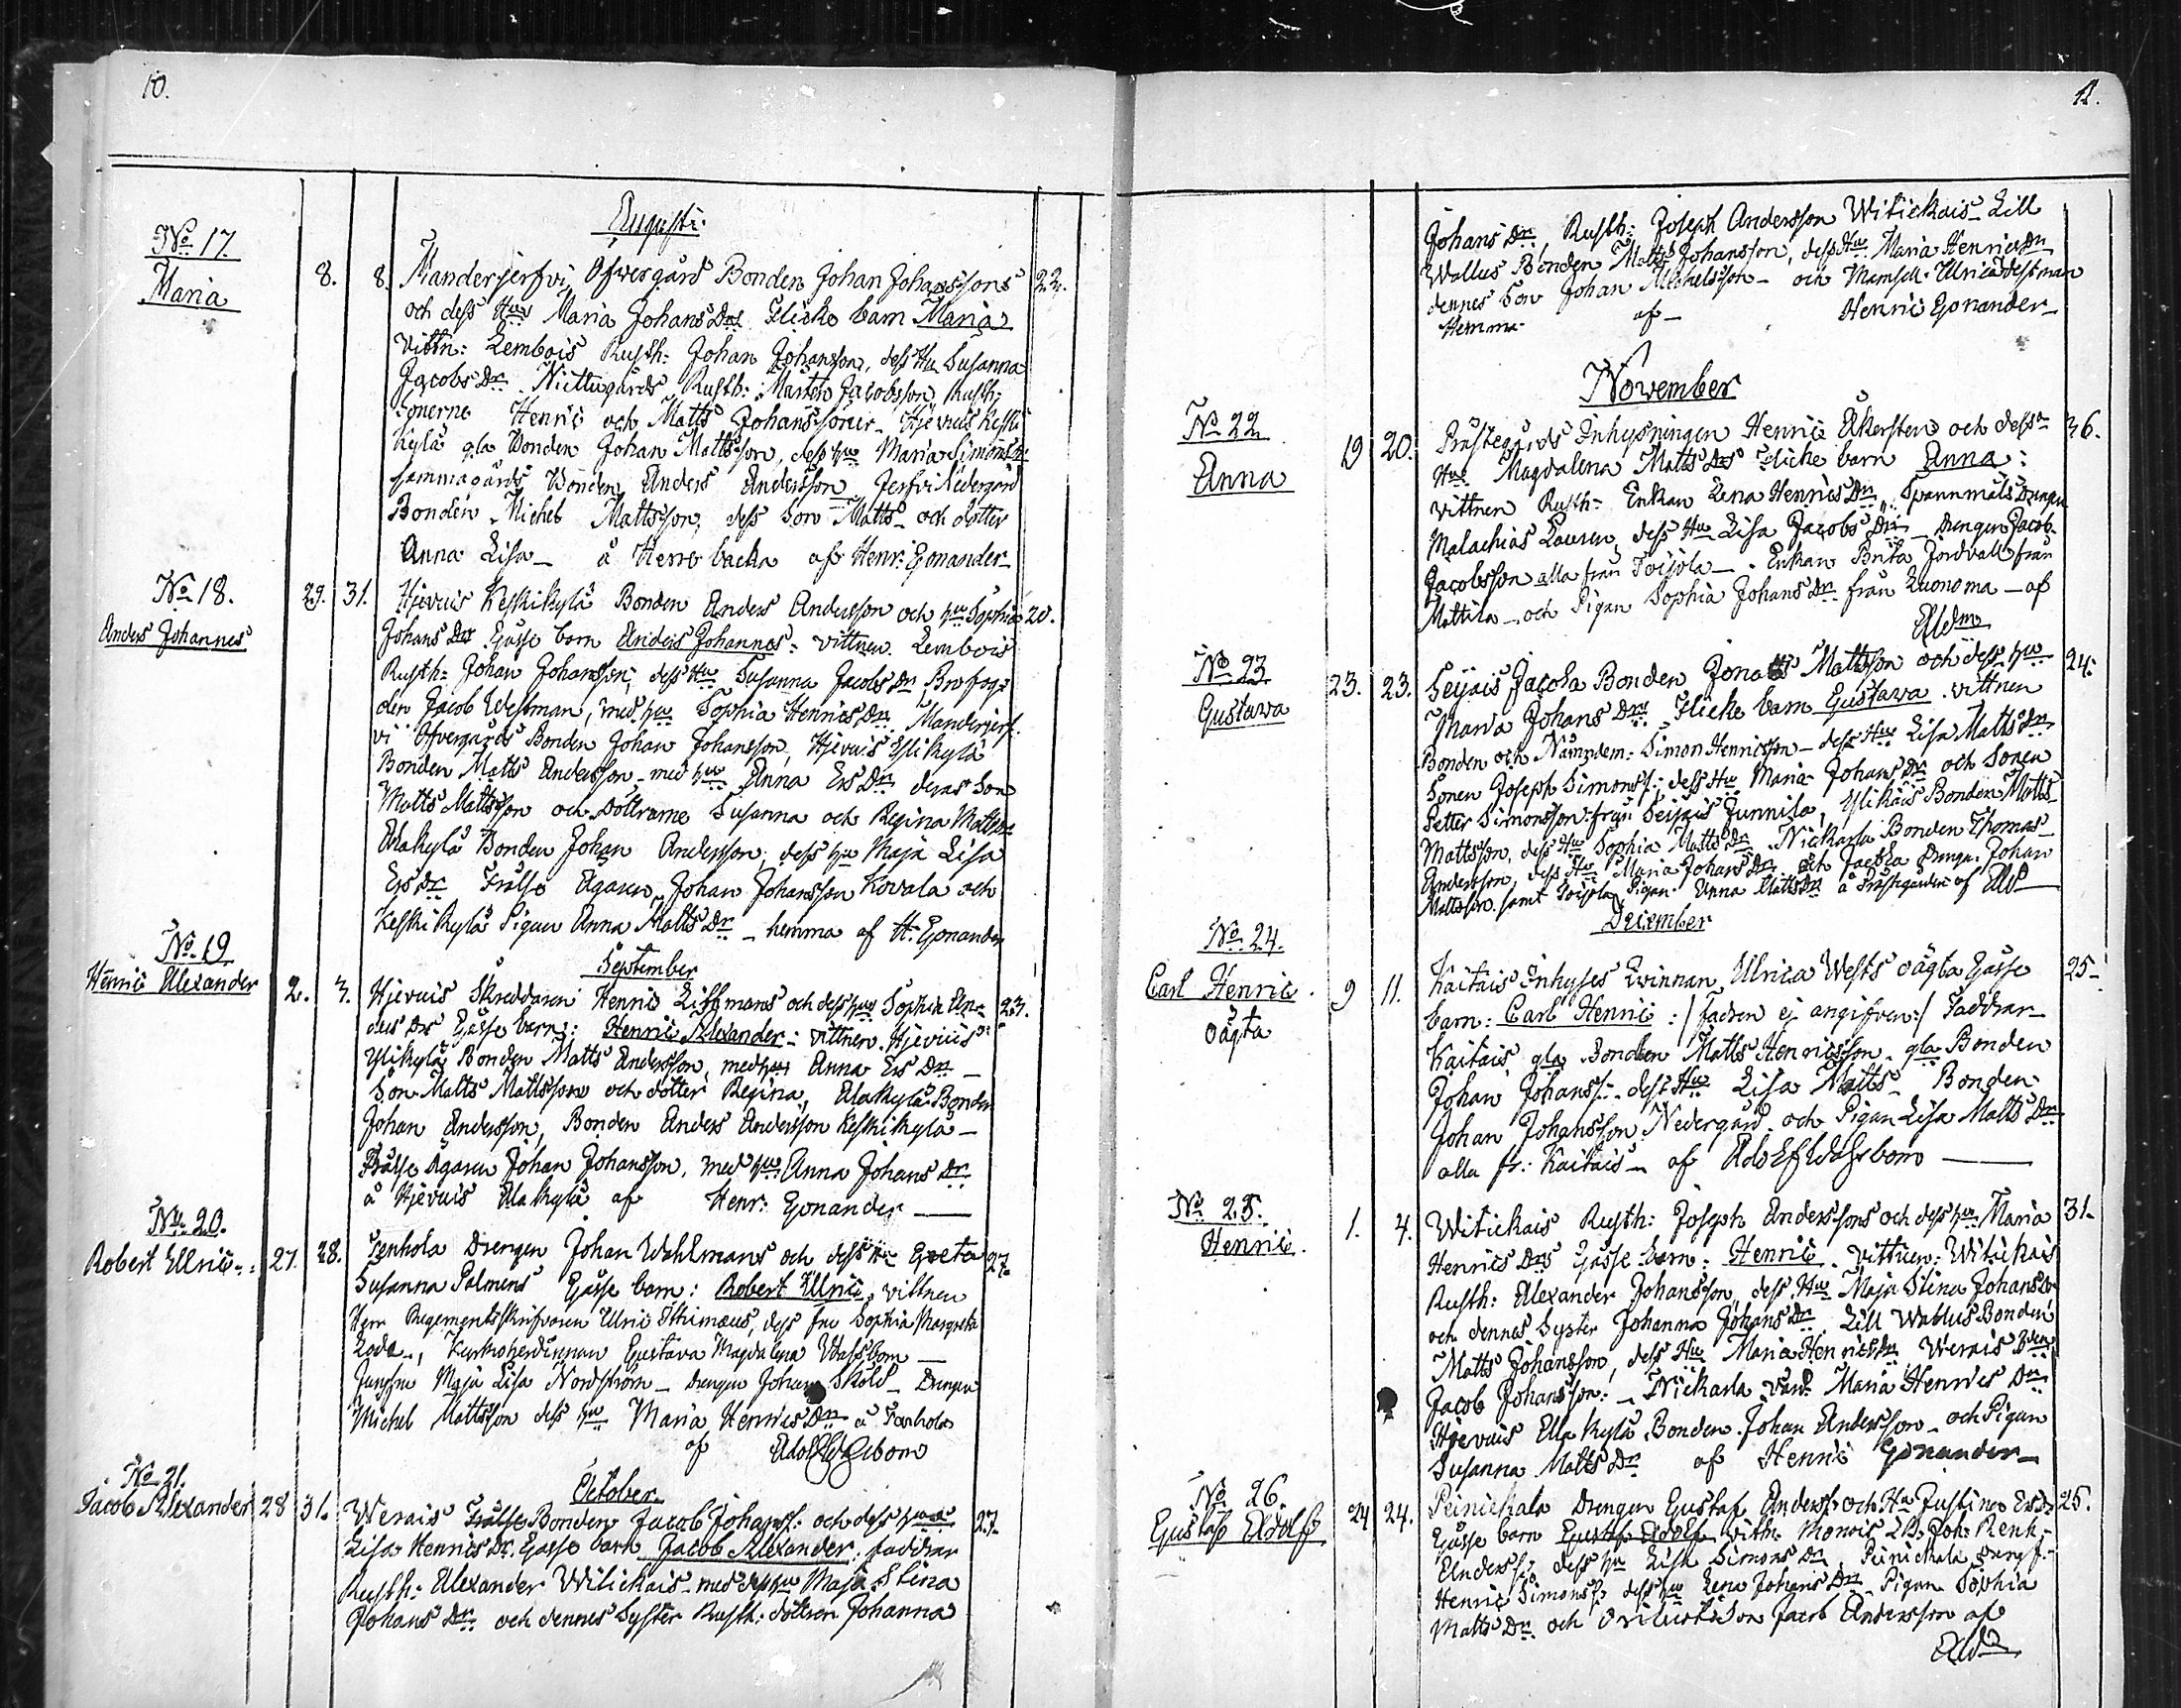 10.
Augusti.
No 17.
Maria
8. 8. Manderjerfvi Ofvergård Bonden Johan Johanssons 22.
och dess Hus Maria Johans Drs Flicke barn Maria
Vittn: Lembois Rusth: Johan Johansson, dess Hu Susanna
Jacobs Dr Rusth: Mårten Jacobsson, Rusth:
Sönerne Henric och Matts Johanssöner Hjevuis Keski
kylä gla Bonden Johan Mattsson, dess hu Maria Simons Dr
samma gårds Bonden Anders Andersson Jerfvi Nedergård
Bonden Michel Mattsson, dess Son Matts och dotter
Anna Lisa å Herre backa af Henr: Gonander
No 18.
Anders Johannes
29. 31. Hjevuis Keskikylä Bonden Anders Andersson och hu Sophia 20.
Johans Drs Gosse barn Anders Johannes: vittnen Lembois
Rusth: Johan Johansson, dess Hu Susanna Jacobs Dr Brofog-
den Jacob Westman, med hu Sophia Henrics Dr Manderjerf-
vi Ofvergårds Bonden Johan Johansson, Hjevuis Ylikylä
Bonden Matts Andersson, med hu Anna Ers Dr deras Son
Matts Mattsson och Döttrarne Susanna och Regina Matts Dr
Alakylä Bonden Johan Andersson, dess hu Maja Lisa
Ers Dr Frälse Ägaren Johan Johansson Kovala och
Keskikylä Pigan Anna Matts Dr hemma af H: Gonander
September
No 19
Henric Alexander
2. 3. Hjevuis Skreddaren Henric Liffmans och dess hus Sophia An- 23.
ders Drs Gosse barn: Henric Alexander: vittnen Hjevuis
Ylikylä Bonden Matts Andersson, med hu Anna Ers Dr
Son Matts Mattsson och dotter Regina, Alakylä Bonden
Johan Andersson, Bonden Anders Andersson Keskikylä
Frälse Ägaren Johan Johansson, med hu Anna Johans Dr
å Hjevuis Alakylä af Henr: Gonander
No 20.
Robert Ulric
27. 28. Drengen Johan Wahlmans och dess Hu Greta 27.
Susanna Palmens Gosse barn: Robert Ulric, vittnen
Herr Regementsskrifvaren Ulric Ithimæus, dess fru Sophia Margreta
Kyrkoherdinnan Gustava Magdalena Wassbom
Jungfru Maja Lisa Nordström Drengen Johan Sköld Drengen
Michel Mattsson dess hu Maria Henrics Dr å
af
October
No 21.
Jacob Alexander
28 31. Werais Frälse Bonden Jacob Johanss: och dess hus 27.
Lisa Henrics Dr Gosse barn Jacob Alexander. faddrar
Rusth: Alexander Witickais med dess hu Maja Stina
Johans Dr och dennes Syster Rusth: dottren Johanna
11.
Johans Dr Rusth: Joseph Andersson Witickais Lill
Wallus Bonden Matts Johansson, dess Hu Maria Henrics Dr
dennes Son Johan Michelsson och Mamsell Ulrica Vestman
Hemma af Henric Gonander
November
No 22
Anna
19 20. Prästegårds Inhysningen Henric Åkerstens och dess 36.
Hus Magdalena Matts Drs Flicke barn Anna:
vittnen Rusth: Enkan Lena Henrics Dr, Spannmåls Drengen
Malachias Lauren, dess Hu Lisa Jacobs Dr Drengen Jacob
Jacobsson alla från Toijola Enkan Brita Jordvall från
Mattila och Pigan Sophia Johans Dr från Luonoma af
No 23
Gustava
23. 23. Seijais Jacola Bonden Jonas Mattsson och dess hu 24.
Maria Johans Drs Flicke barn Gustava vittnen
Bonden och Nämndem: Simon Henricsson dess Hu Lisa Matts Dr
Sonen Joseph Simonss: dess Hu Maria Johans Dr och Sonen
Petter Simonsson från Seijais Junnila, Ylikäis Bonden Matts
Mattsson, dess Hu Sophia Matts Dr Nickarla Bonden Thomas
Andersson, dess Hu Maria Johans Dr och Jacola Dreng: Johan
Mattsson samt Toijola Pigan Anna Matts Dr å Prästegården af
December
No 24.
Carl Henric
oägta
9 11. Kaitais Inhyses Qvinnan Ulrica Wests oägta Gosse 25
barn: Carl Henric :/ fadren ej angifven :/ Faddrar
Kaitais gla Bonden Matts Henricsson gla Bonden
Johan Johanss: dess Hu Lisa Matts Bonden
Johan Johansson Nedergård och Pigan Lisa Matts Dr
alla fr: Kaitais af Adolf Wassbom
No 25.
Henric
1. 4. Witickais Rusth: Joseph Anderssons och dess hu Maria 31.
Henrics Drs Gosse barn: Henric. vittnen: Witickais
Rusth: Alexander Johansson, dess Hu Maja Stina Johans Dr
och dennes Syster Johanna Johans Dr Lill Wallus Bonden
Matts Johansson, dess Hu Maria Henrics Dr Werais
Jacob Johansson: Nickarla Maria Henrics Dr
Hjevuis Alakylä Bonden Johan Andersson och Pigan
Susanna Matts Dr af Henric Gonander
No 26.
Gustaf Adolf
24 24. Peinickala Drengen Gustaf Anderss: och Hu Justina Ers Dr 25.
Gosse barn Gustaf Adolf vittn: Joh: Renk
Anderss: dess hu Lisa Simons Dr Peinickala
Henric Simonss: dess hu Lena Johans Dr Pigan Sophia
Matts Dr och Son Jacob Andersson af